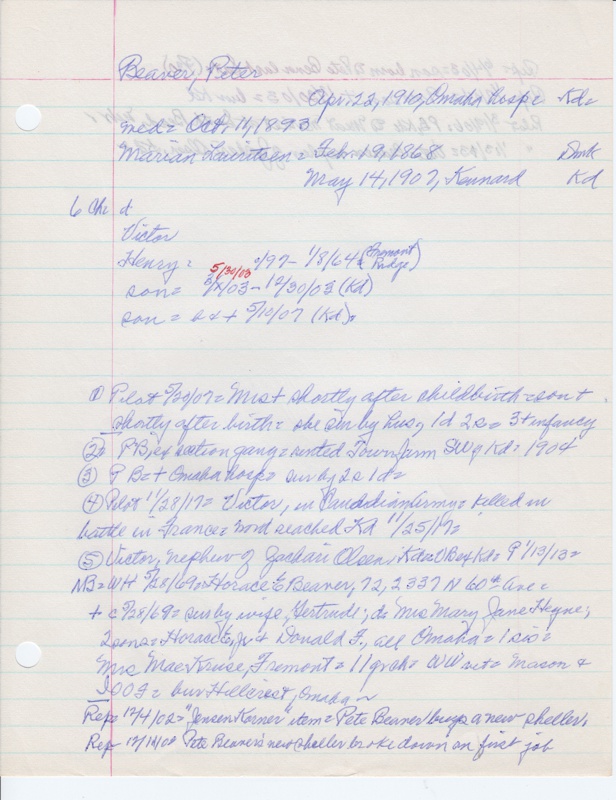 Beaver, Peter
Apr. 22, 1910, Omaha hosp = Kd=
med = Oct. 11, 1893
Marian Lauritsen = Feb. 19, 1868 Dmk
May 14, 1907, Kennard Kd
6 Ch: d
Victor
Henry = 2/97 - 1/8/64 (Fremont Ridge)
5/30/03
son = 03 - 12/30/03 (Kd)
son = + 5/10/07 (Kd)=
① Pilot 5/20/07 = Mrs + shortly after childbirth = son +
shortly after birth = she sur by hus, 1d 2s = 3 + infancy
② PB, section gang = rented Town farm SW of Kd = 1904
③ PB = + Omaha hosp = sur by 2s 1d =
④ Pilot 11/28/17 = Victor, in Canadian Army = killed in
battle in France = word reached Kd 11/25/17=
⑤ Victor, nephew of Zachari Olsen, Kd = 9 1/13/13=
NB = WH 5/28/69 = Horace E Beaver, 72, 2337 N 60th Ave =
+ c 5/28/69 = sur by wife, Gertrude; d= Mrs Mary Jane Heyne;
2 sons = Horace E, Jr + Donald F., all Omaha = 1 sis =
Mrs Mae Kruse, Fremont = 11 grch = WW vet = Mason &
IOOF = bur Hillcrest, Omaha
Rep= 12/4/02 = "Jensen Korner" item = Pete Beaver buys a new sheller,
Rep 12/18/02 Pete Beaver's new sheller broke down on first job